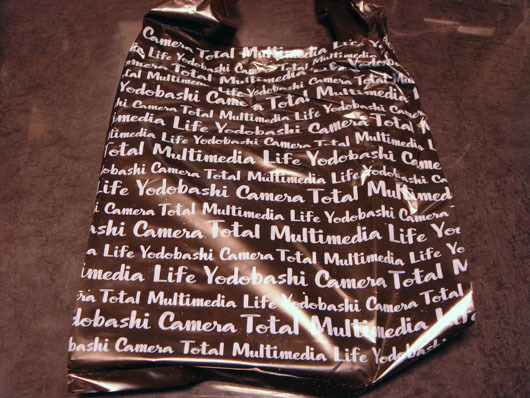 Camera Total Multimedia Life Yodo
Life Yodobashi Camera Total Multimedia
Total Multimedia Life Yodobashi Camera
Life Yodobashi Camera Total Multimedia
Multimedia Life Yodobashi Camera Total
Yodobashi Camera Total Multimedia
Multimedia Life Yodobashi Camera Total
Life Yodobashi Camera Total Multimedia Life
Total Multimedia Life Yodobashi Camera
Camera Total Multimedia Life Yodobashi Camera
Life Yodobashi Camera Total Multimedia
Camera Total Multimedia Life Yodobashi Camera
Camera Total Multimedia Life Yo
Life Yodobashi Camera Total Multimedia
Multimedia Life Yodobashi Camera Total M
Total Multimedia Life Yodobashi Camera Total
dobashi Camera Total Multimedia Life Yodo
bashi Camera Total Multimedia Life Yodobash